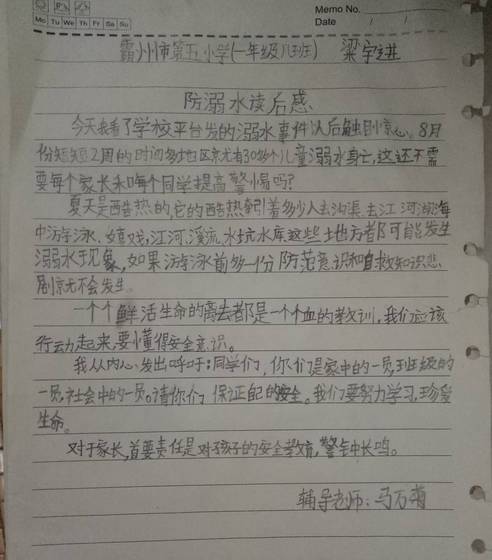 Memo No.
Mo Tu We Th Fr Sa Su
Date / /
霸州市第五小学(一年级八班) 梁宇进
防溺水读后感
今天我看了学校平台发的溺水事件以后触目惊心。8月
份短短2周的时间多地区竟尤有30多个儿童溺水身亡,这还不需
要每个家长和每个同学提高警惕吗?
夏天是酷热的,它的酷热牵引着多少人去沟渠.去江河湖海
中游泳、嬉戏,江河、溪流、水坑水库这些地方都可能发生
溺水现象,如果游泳前多一份防范意识和自救知识悲
剧就不会发生。
一个个鲜活生命的离去都是一个个血的教训,我们应该
行动起来,要懂得安全意识。
我从内心发出呼吁:同学们,你们是家中的一员,班级的
一员,社会中的一员。请你们保证自己的安全。我们要努力学习,珍爱
生命。
对于家长,首要责任是对孩子的安全教育,警钟长鸣。
辅导老师:马万菊